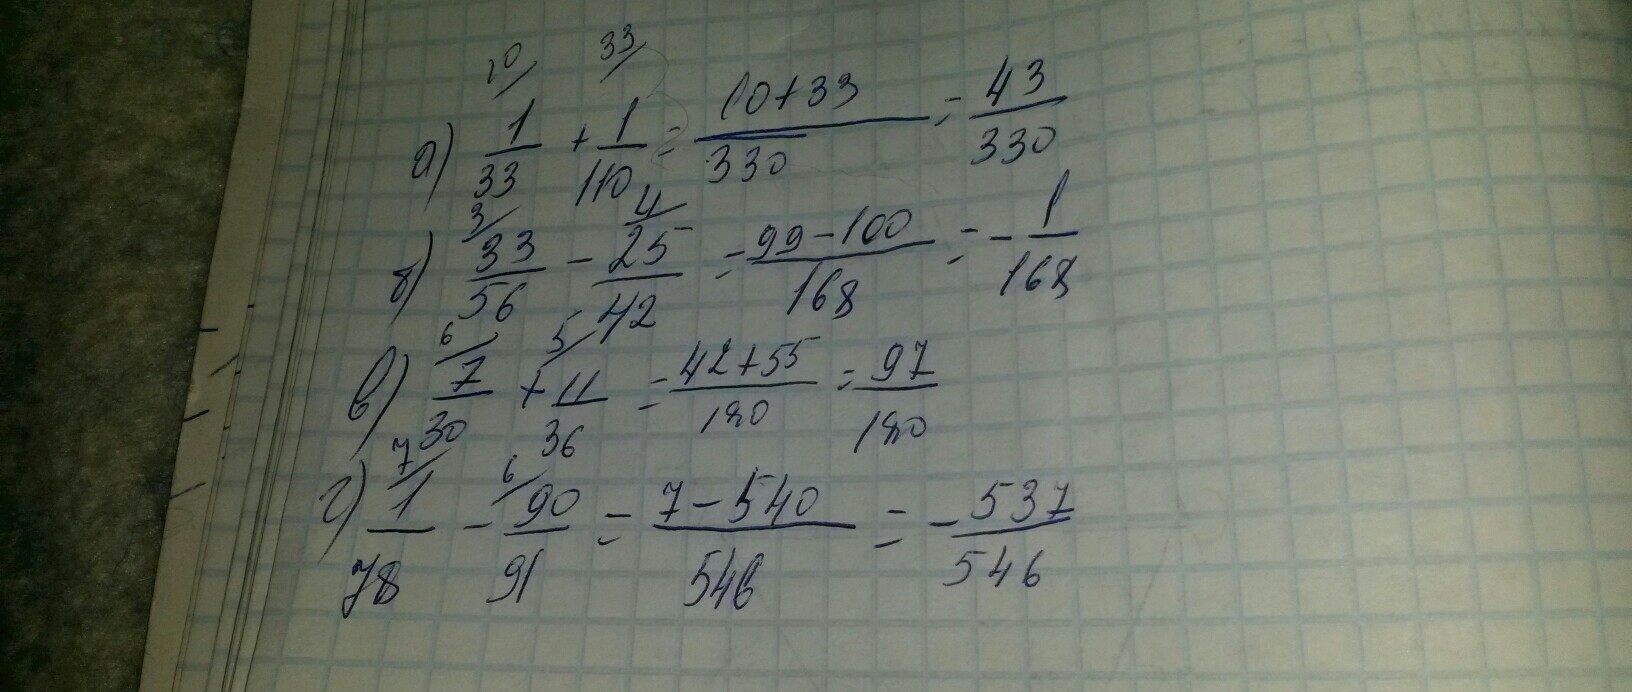 10/ 33/
а) 1/33 + 1/110 = 10+33/330 = 43/330
3/ 4/
б) 33/56 - 25/42 = 99-100/168 = - 1/168
6/ 5/
в) 7/30 + 11/36 = 42+55/180 = 97/180
7/ 6/
г) 1/78 - 90/91 = 7-540/546 = - 537/546